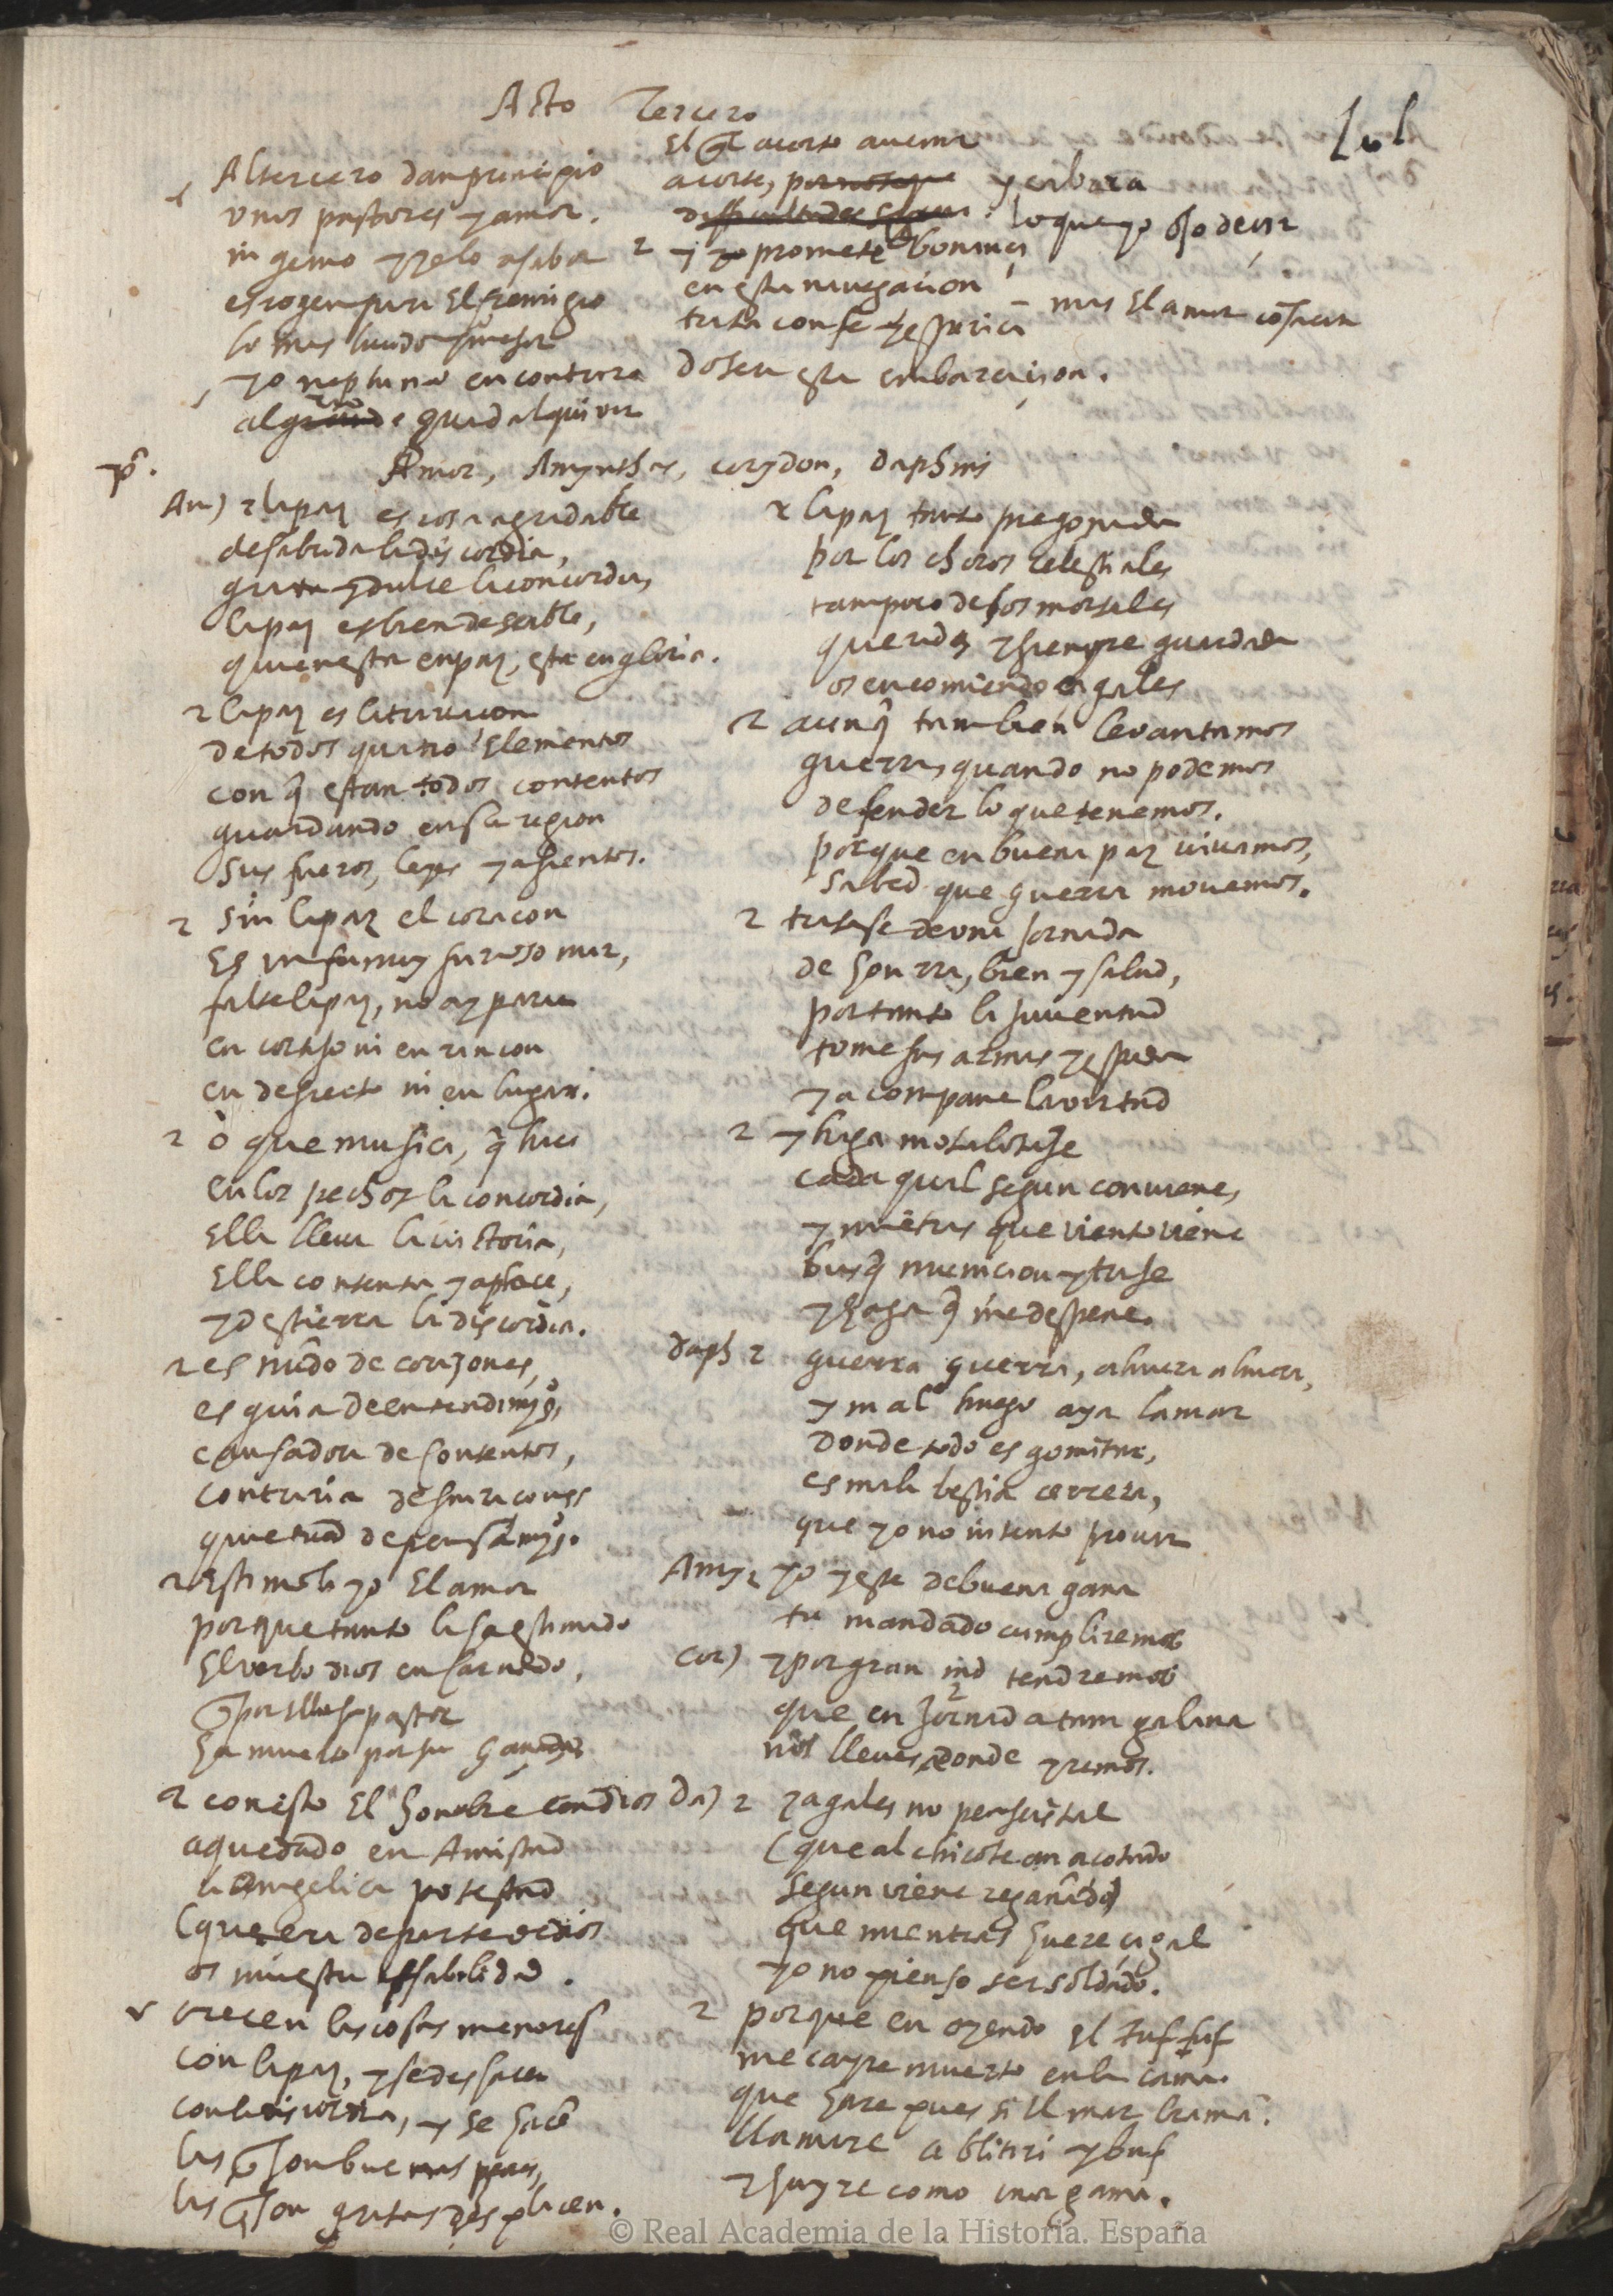 Acto Tercero
Al tercero dan principio
unos pastores y amor.
ingenio y zelo a saber
escogen para el remigio
lo mas lucido
yo neptuno en contorno
al guadalquivir
El ql acorto
acorte,
y prometo
en esta navegacion
trata con fe
dosea esta embarcacion.
lo que yo oso decir
mas El amor
101
Amor, Amynthas, corydon, daphnis
Am) 2 la paz es cosa agradable
desabrida la discordia,
grata y dulce la concordia,
la paz es bien deseable,
quien esta en paz, esta en gloria.
2 la paz es la trauacon
de todos quatro Elementos
con q̃ estan todos contentos
guardando en su region
sus fueros, leyes y asientos.
2 sin la paz el coracon
Es un furioso mar,
falte la paz, no ay parar
en cortijo ni en rincon
en desierto ni en lugar.
2 o que musica, q̃ hace
en los pechos la concordia,
Ella lleva la victoria,
Ella contenta y aplace,
y destierra la discordia.
2 es nudo de corazones,
es guia de entendimyos,
causadora de contentos,
contraria de sinracones
quietud de pensamyos.
2 Estimola yo El amor
porque tanto la ha estimado
El verbo dios encarnado,
q̃ por ella pastor
ha muerto por su ganado.
2 con esto El hombre con dios
a quedado en Amistad
la Angelica potestad
(que era de parte de dios
os muestra affabilidad.
2 crecen las cosas menores
con la paz, y se deshacen
con la discordia, y se hacen
las q̃ son buenas peores,
las q̃ son gratas desplacen.
2 la paz tanto pregonada
por los choros celestiales
tampoco de los mortales
querida y siempre guardada
os encomiendo zagales
2 aunq̃ tambien levantamos
guerras quando no podemos
defender lo que tenemos.
porque en buena paz vivamos,
sabed que guerra movemos.
2 tratase de una jornada
de honrra, bien y salud,
por tanto la juventud
tome sus armas y espada
y acompane la virtud
2 y haga matalotaje
cada qual segun conviene,
y mietras que viento viene
busq̃ municion y traje
y haga q̃ me despene.
Daph 2 guerra guerra, afuera afuera,
y mal fuego aya la mar
donde todo es gomitar,
es mala bestia cerrera,
que yo no intento provar
Amy 2 yo y este de buena gana
tu mandado cumpliremos
Cor) y por gran md tendremos
que en jornada tam galana
nos lleves, donde yremos.
Da) 2 zagales no penseis tal
(que al chicote an acotado
segun viene reganado)
que mientras fuere zagal
yo no pienso ser soldado.
2 porque en oyendo el tuf tuf
me cayre muerto en la cama.
que hare pues si el mar brama.
llamare a blitiri y buf
y huyre como una gama.
© Real Academia de la Historia. España